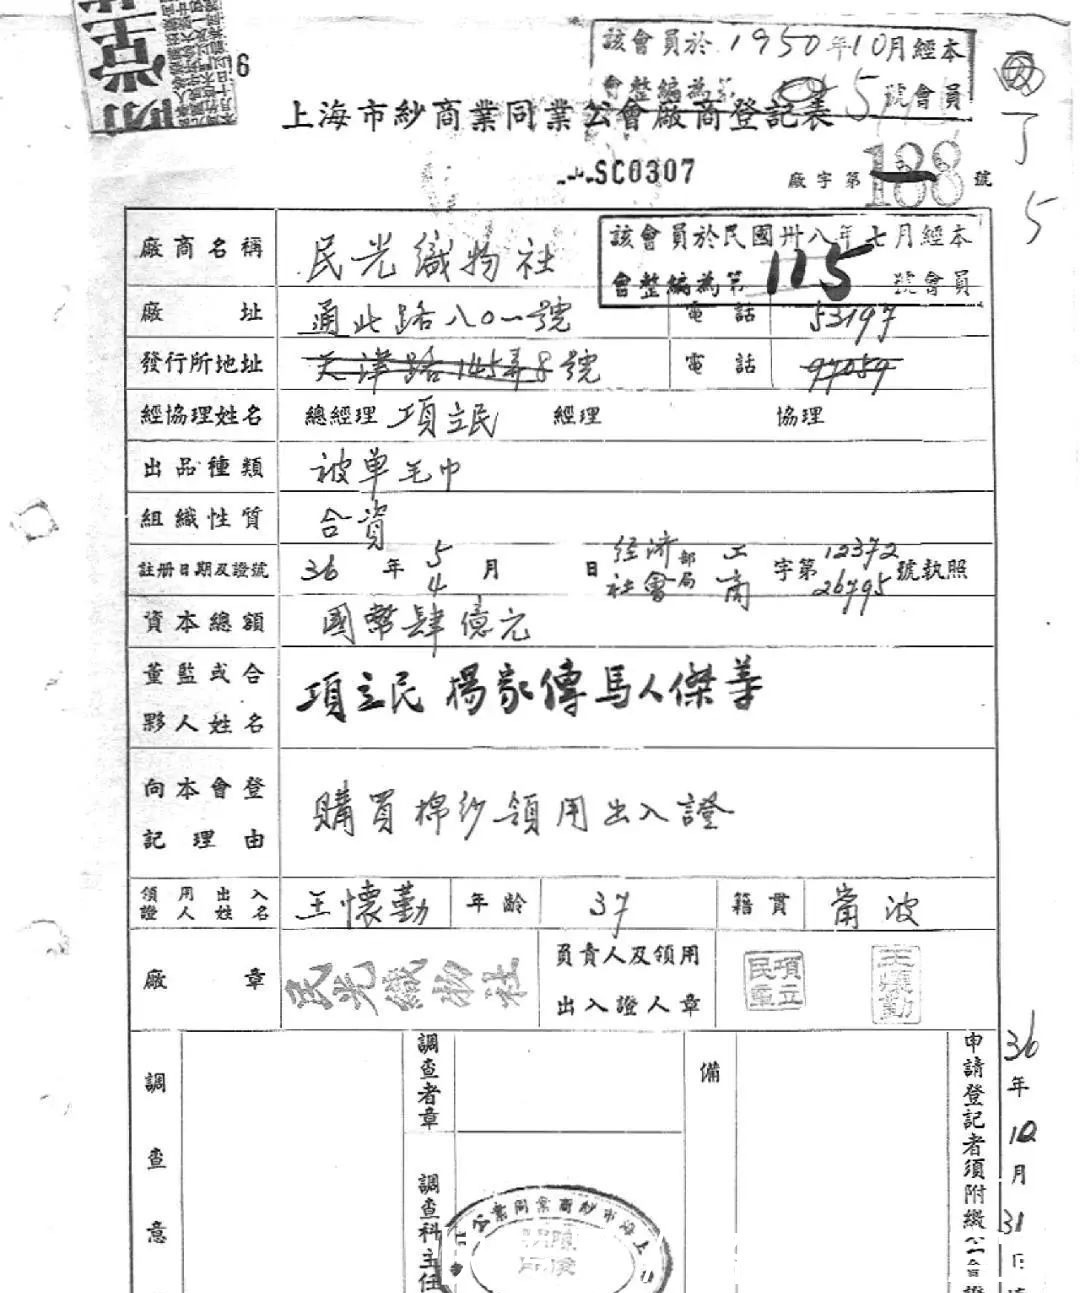 6
該會員於1950年10月經本
會整編為第 5 號會員
上海市紗商業同業公會廠商登記表
SC0307
廠字第188號
5
廠商名稱 民光織物社
該會員於民國卅八年七月經本
會整編為第115號會員
廠址 通北路八〇一號 電話 53197
發行所地址 天津路145弄8號 電話 97059
經協理姓名 總經理 項立民 經理 協理
出品種類 被单毛巾
組織性質 合資
註冊日期及證號 36年5月日 经济部工字第12372號執照
4 社會局商 26795
資本總額 國幣肆億元
董監或合
夥人姓名
項立民 楊家傳 馬人傑 等
向本會登
記理由
購買棉纱領用出入證
領用出入
證人姓名
王懷勤 年齡 37 籍貫 甯波
廠章 民光織物社
負責人及領用
出入證人章
項立民章
王懷勤
調查意
調查者章
調查科主任
上海市紗商業同業公會
備
申請登記者須附繳
36年10月31日